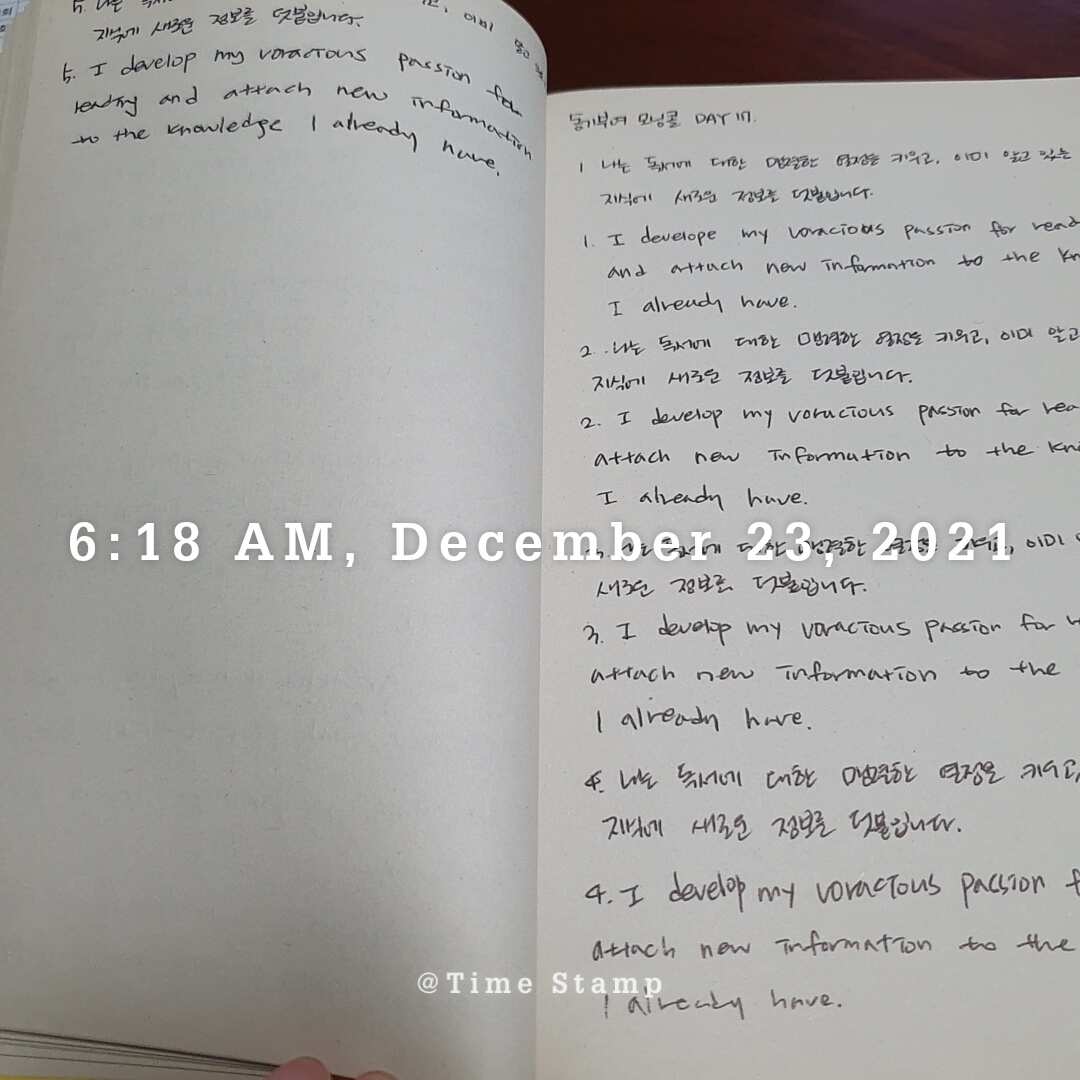 5. 나는
지식에 새로운 정보를 덧붙입니다.
5. I develop my voracious passion for
reading and attach new information
to the knowledge I already have.
동기부여 모닝콜 DAY 17.
1 나는 독서에 대한 맹렬한 열정을 키우고, 이미 알고 있는
지식에 새로운 정보를 덧붙입니다.
1. I develope my voracious passion for read
and attach new information to the kn
I already have.
2. 나는 독서에 대한 맹렬한 열정을 키우고, 이미 알고
지식에 새로운 정보를 덧붙입니다.
2. I develop my voracious passion for rea
attach new information to the kn
I already have.
6:18 AM, December 23, 2021
3. 나는 독서에 대한 맹렬한 열정을 키우고, 이미
새로운 정보를 덧붙입니다.
3. I develop my voracious passion for
attach new information to the
I already have.
4. 나는 독서에 대한 맹렬한 열정을 키우고,
지식에 새로운 정보를 덧붙입니다.
4. I develop my voracious passion f
attach new information to the
@Time Stamp
I already have.